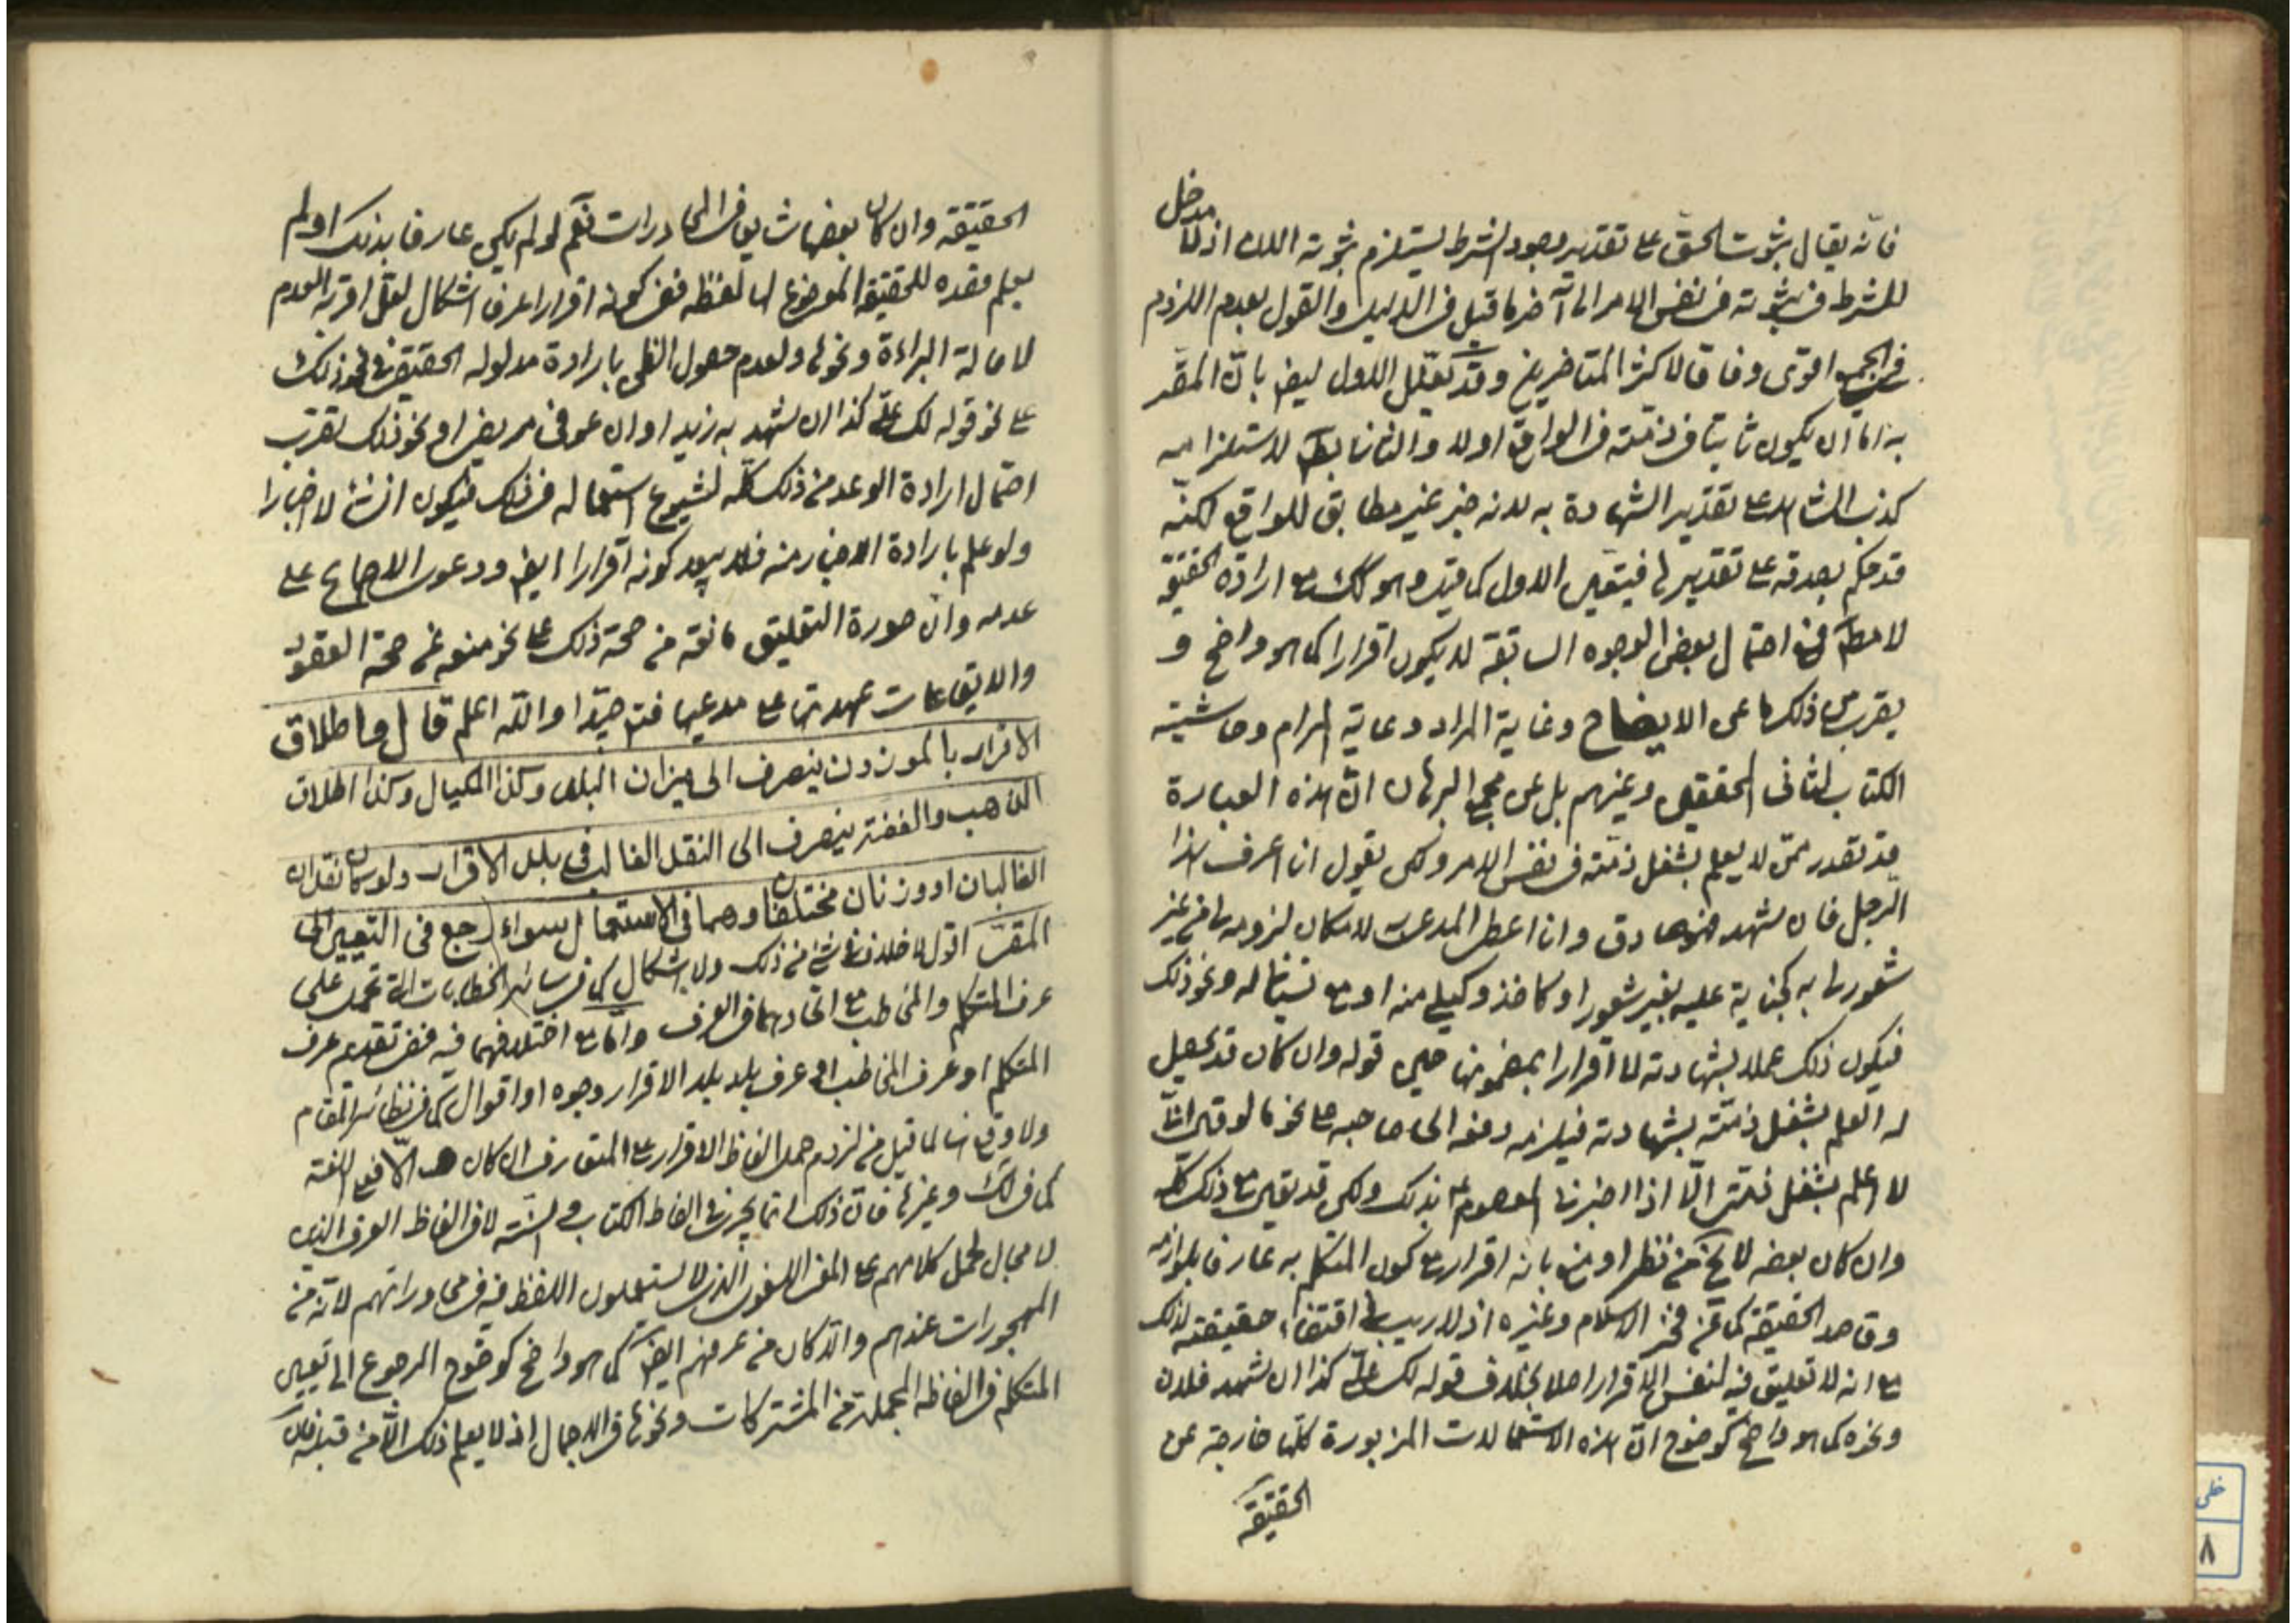 فانه يقال ثبوت الحق على تقدير وجود الشرط يستلزم ثبوته الان اذ لا مدخل
للشرط فى ثبوته فى نفس الامر الى آخر ما قيل فى الدليل والقول بعدم اللزوم
فى الجميع اقوى وفاقا لاكثر المتاخرين وقد يعلل الاول ايض بان المقر
به اما ان يكون ثابتا فى ذمته فى الواقع اولا والثانى بط لاستلزامه
كذب الشاهد على تقدير الشهادة به لانه خبر غير مطابق للواقع لكنه
قد حكم بصدقه على تقديرها فيتعين الاول كما قيل وهو كك مع ارادة الحقيقة
لا مط فمع احتمال بعض الوجوه السابقة لا يكون اقرارا كما هو واضح و
يقرب من ذلك ما عن الايضاح وغاية المراد وغاية المرام وحاشية
الكتاب لثانى المحققين وغيرهم بل عن مجمع البرهان ان هذه العبارة
قد تصدر ممن لا يعلم بشغل ذمته فى نفس الامر ولكن يقول انا اعرف هذا
الرجل فان شهد فهو صادق وانا اعطى المدعى لامكان لزومه من غير
شعورى به كجناية عليه بغير شعور او كاخذ وكيلى منه او مع نسيانا له ونحو ذلك
فيكون ذلك عملا بشهادته لا اقرارا بمضمونها حين قوله وان كان قد يحصل
له العلم بشغل ذمته بشهادته فيلزمه دفعه الى صاحبه على نحو ما لو قال انا
لا اعلم بشغل ذمتى الا اذا اخبرنا المعصوم ع بذلك ولكن قد يقال مع ذلك كله
وان كان بعضه لا يخ من نظر او منع بانه اقرار مع كون المتكلم به عارفا بلوازمه
وقاصد الحقيقة كما عن فخر الاسلام وغيره اذ لا ريب فى اقتضاء حقيقته لذلك
مع انه لا تعليق فيه لنفس الاقرار اصلا بخلاف قوله لك على كذا ان شهد فلان
ونحوه كما هو واضح كوضوح ان هذه الاستعمالات المزبورة كلها خارجة عن
الحقيقة
الحقيقة وان كان بعضها شايعا فى المحاورات نعم لو لم يكن عارفا بذلك او لم
يعلم قصده للحقيقة الموضوع لها لفظه ففى كونه اقرارا عرفا اشكال لعل اقربه العدم
لاصالة البراءة ونحوها ولعدم حصول الظن بارادة مدلوله الحقيقى فى نحو ذلك
على نحو قوله لك على كذا ان شهد به زيد او ان عوفى مريض او نحو ذلك لقرب
احتمال ارادة الوعد من ذلك كله لشيوع استعماله فى ذلك فيكون انشاء لا اخبارا
ولو علم بارادة الاخبار منه فلا يبعد كونه اقرارا ايض ودعوى الاجماع على
عدمه وان صورة التعليق مانعة من صحة ذلك على نحو منعه من صحة العقود
والايقاعات عهدتها على مدعيها فتد جيدا والله اعلم قال واطلاق
الاقرار بالموزون ينصرف الى ميزان البلد وكذا المكيال وكذا اطلاق
الذهب والفضة ينصرف الى النقد الغالب فى بلد الاقرار ولو كان نقدان
الغالبان او وزنان مختلفان وهما فى الاستعمال سواء رجع فى التعيين الى
المقر اقول لا خلاف فى شئ من ذلك ولا اشكال كما فى سائر الخطابات التى تحمل على
عرف المتكلم والمخاطب مع اتحادهما فى العرف واما مع اختلافهما فيه ففى تقديم عرف
المتكلم او عرف المخاطب او عرف بلد بلد الاقرار وجوه او اقوال كما فى نظائر المقام
ولا وقع لها لما قيل من لزوم حمل الفاظ الاقرار على المتعارف ان كان هو والا فعلى اللغة
كما فى لك وغيرها فان ذلك انما يجرى فى الفاظ الكتاب والسنة لا فى الفاظ العرف الذين
لا مجال لحمل كلامهم على المعنى اللغوى الذى لا يستعملون اللفظ فيه فى محاوراتهم لانه من
المهجورات عندهم والا كان من عرفهم ايض كما هو واضح كوضوح الرجوع الى تعيين
المتكلم فى الفاظه المجملة من المشتركات ونحوها فى الاجمال اذ لا يعلم ذلك الا من قبله فان
خطى
٨